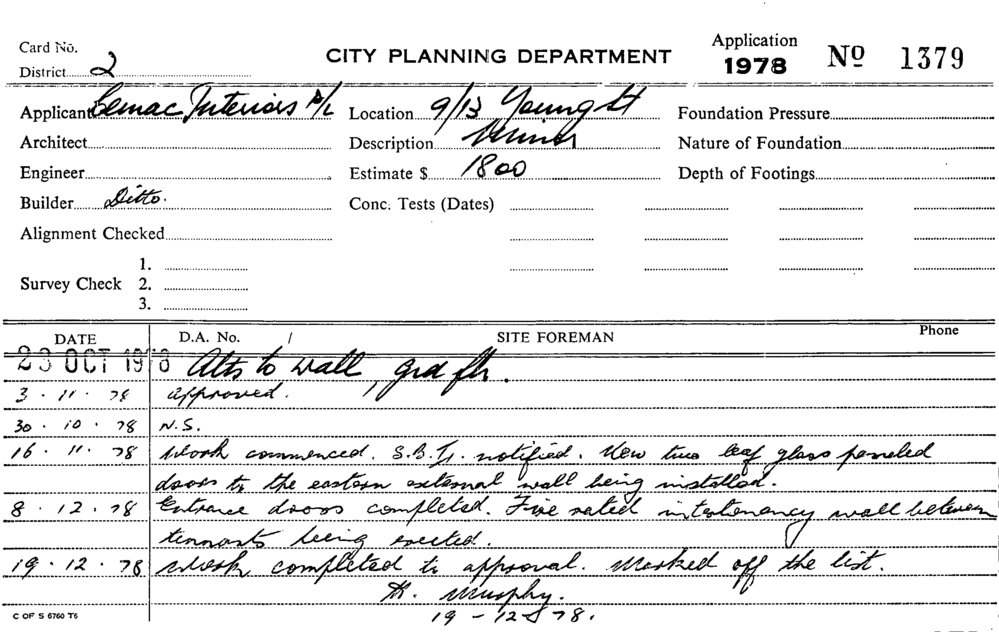 Card No.
District 2
CITY PLANNING DEPARTMENT
Application
1978
No 1379
Applicant Cemac Interiors P/L
Location 9/13 Young St
Foundation Pressure
Architect
Description Minor
Nature of Foundation
Engineer
Estimate $ 1800
Depth of Footings
Builder Ditto.
Conc. Tests (Dates)
Alignment Checked
Survey Check
1.
2.
3.
DATE D.A. No. / SITE FOREMAN Phone
23 OCT 1978 Alts to wall, grd flr.
3 . 11 . 78 approved.
30 . 10 . 78 N.S.
16 . 11 . 78 Work commenced. notified. New two leaf glass paneled
doors to the eastern external wall being installed.
8 . 12 . 78 Entrance doors completed. Fire rated intertenancy wall between
tennants being erected.
19 . 12 . 78 Work completed to approval. Marked off the list.
Murphy.
19 - 12 - 78.
C OF S 6760 T6